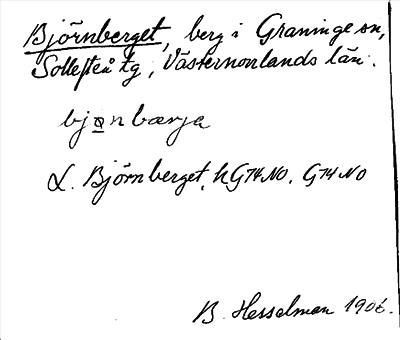 Björnberget, berg i Graninge sn,
Sollefteå tg, Västernorrlands län.
bjønbærja
L. Björnberget, h G74NO. G74NO
B. Hesselman 1906.